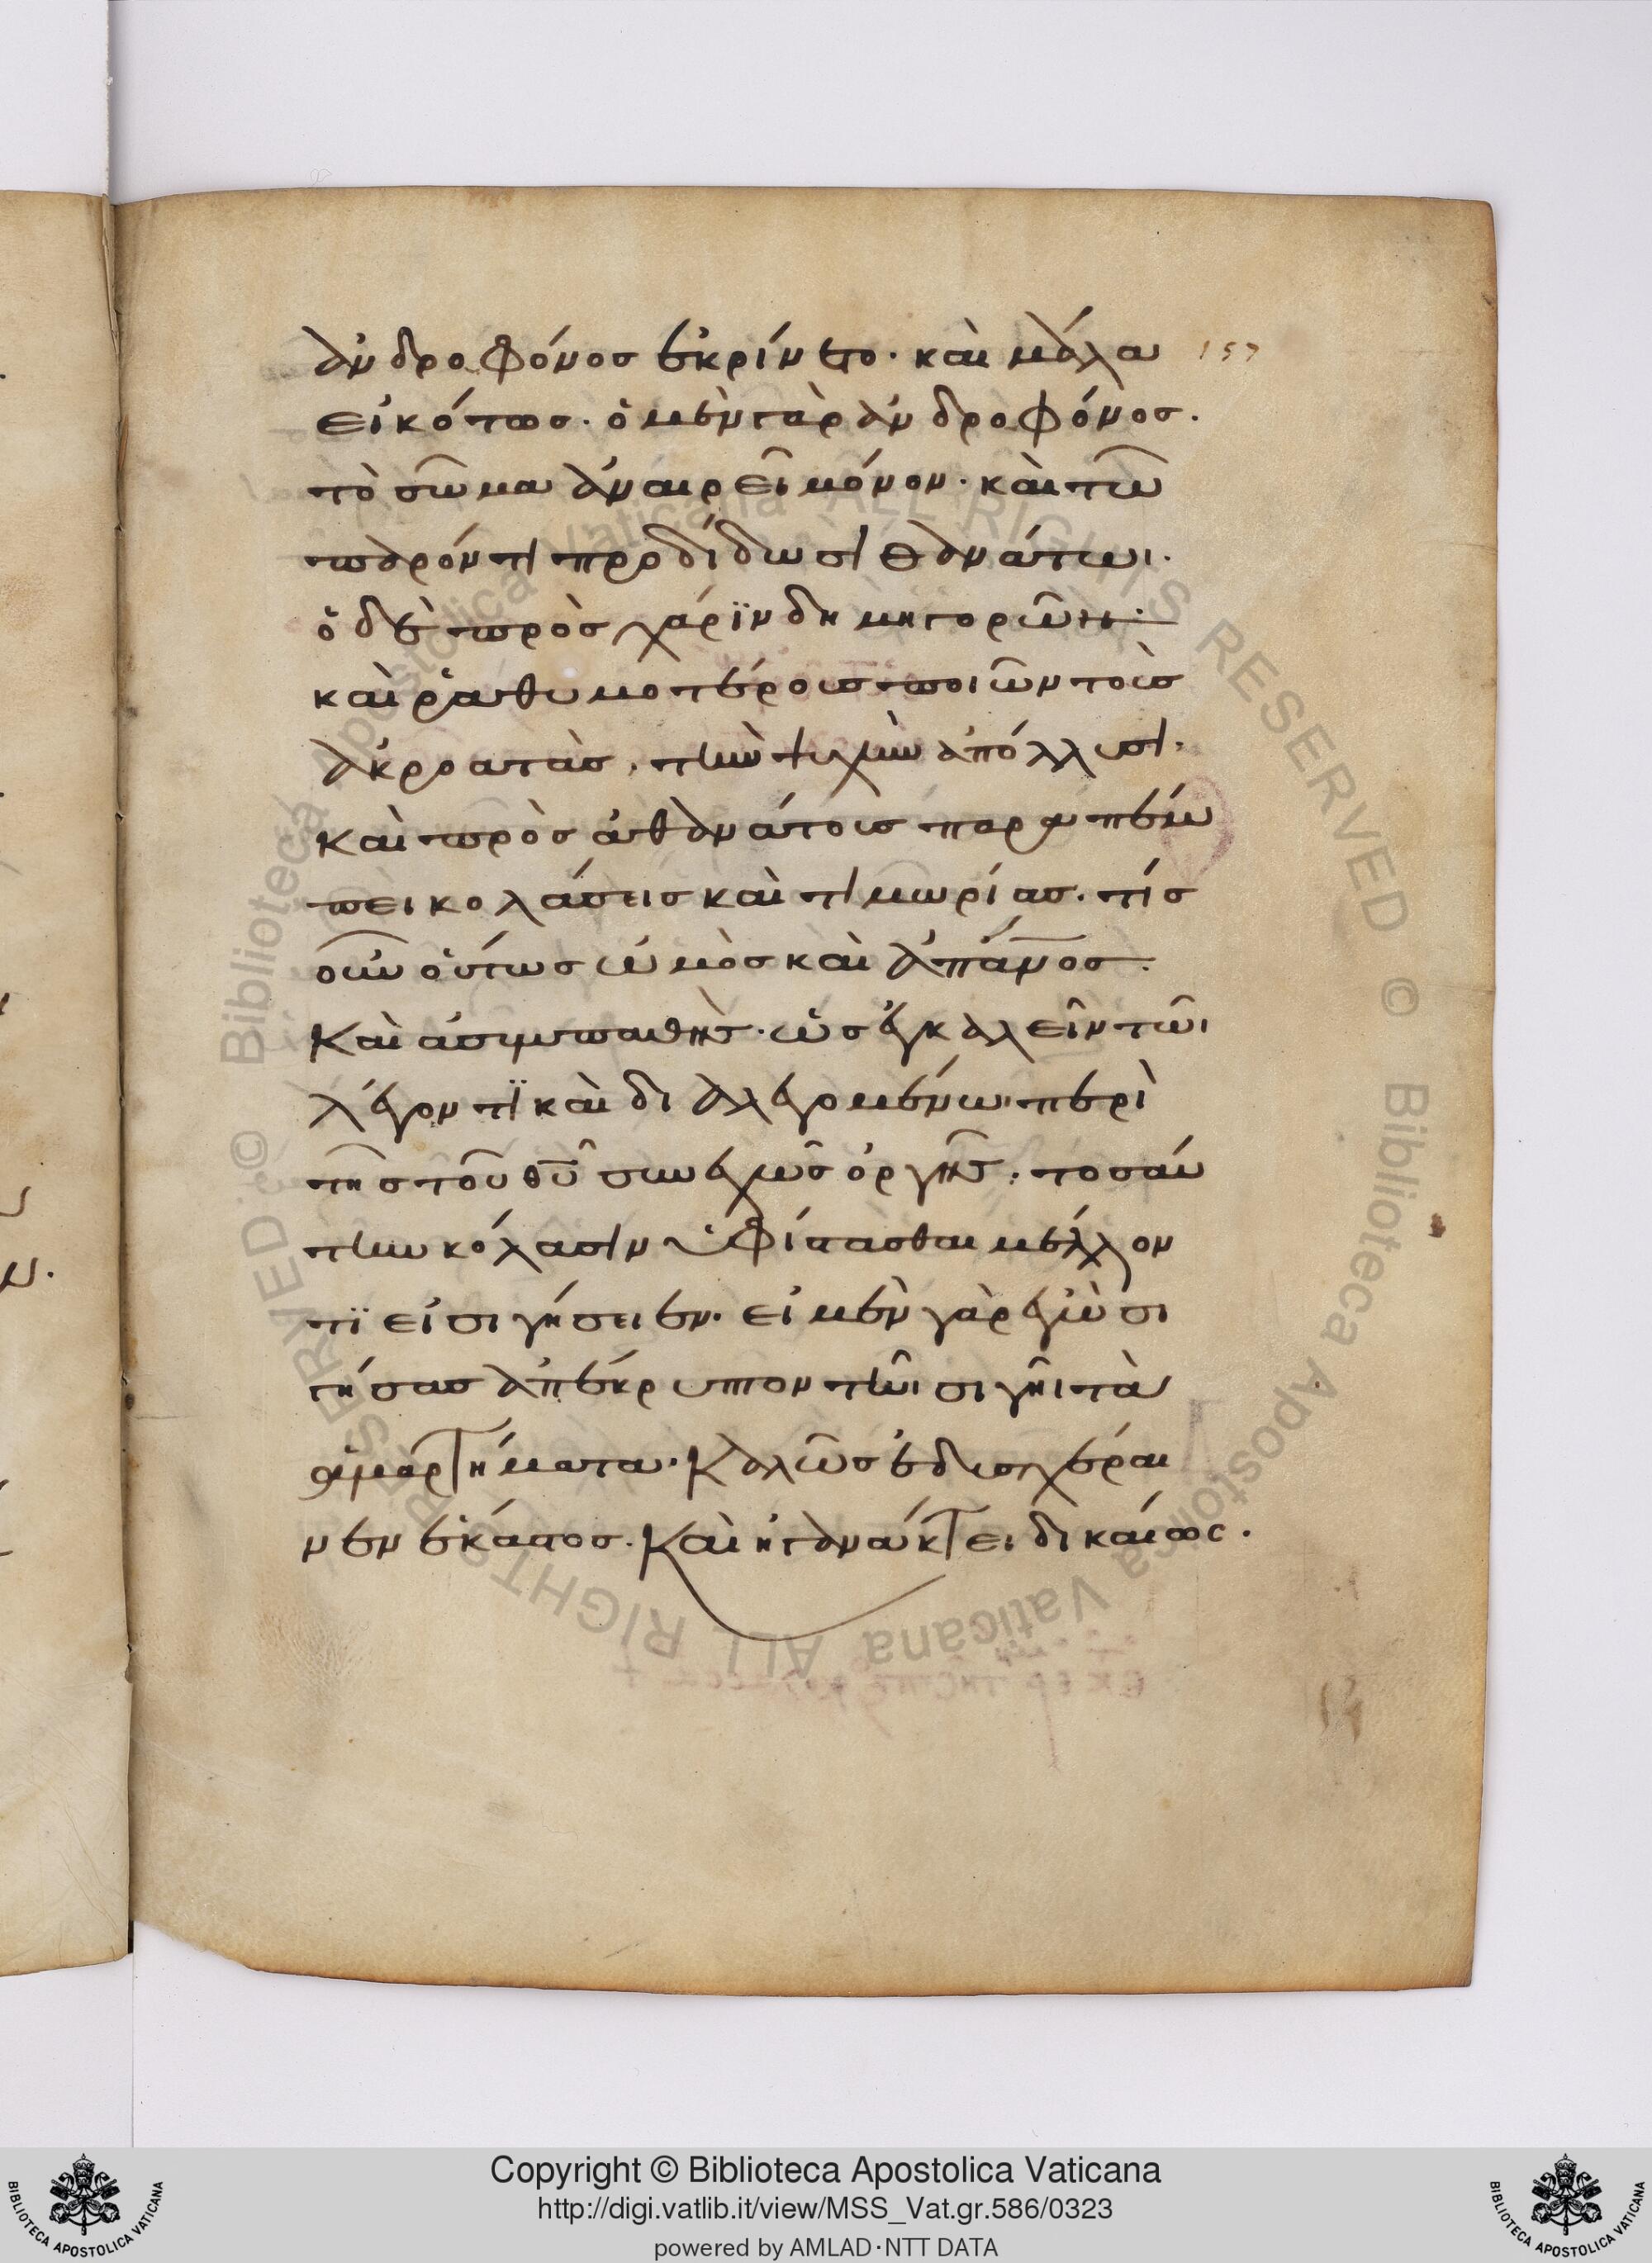 ἀνδροφόνος ἐκρίνετο· καὶ μάλα
157
εἰκότως· ὁ μὲν γὰρ ἀνδροφόνος·
τὸ σῶμα ἀναιρεῖ μόνον· καὶ τῶ
παρόντι προδίδωσι θανάτωι·
ὁ δὲ πρὸς χάριν δημηγορῶν·
καὶ ῥαθυμοτέρους ποιῶν τοὺς
ἀκροατὰς, τὴν ψυχὴν ἀπόλλυσι·
καὶ πρὸς ἀθανάτους παραπέμ
πει κολάσεις καὶ τιμωρίας· τίς
οὖν οὕτως ὠμὸς καὶ ἀπάνος·
καὶ ἀσυμπαθὴς· ὡς ἐγκαλεῖν τῶι
λέγοντι καὶ διαλεγομένωι περὶ
τῆς τοῦ θυ συνεχῶς ὀργῆς· τοσαύ
την κόλασιν ὑφίστασθαι μέλλον
τι εἰ σιγήσειεν· εἰ μὲν γὰρ ἐγὼ σι
γήσας ἀπέκρυπτον τῆι σιγῆι τὰ
ἁμαρτήματα· καλῶς ἐδυσχέραι
νεν ἕκαστος· καὶ ἠγανάκτει δικαίως·
Copyright © Biblioteca Apostolica Vaticana
http://digi.vatlib.it/view/MSS_Vat.gr.586/0323
powered by AMLAD·NTT DATA
BIBLIOTECA APOSTOLICA VATICANA
BIBLIOTECA APOSTOLICA VATICANA
© Biblioteca Apostolica Vaticana ALL RIGHTS RESERVED © Biblioteca Apostolica Vaticana ALL RIGHTS RESERVED